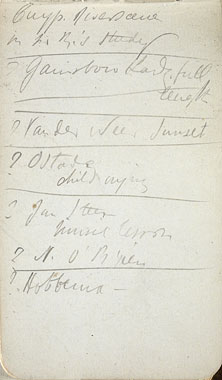 Cuyp. River scene
in Mr N's Study
? Gainsboro Lady full
length
? Van der Neer Sunset
? Ostade
child crying
? Jan Steen
music lesson
? N. O'Brien
? Hobbema —